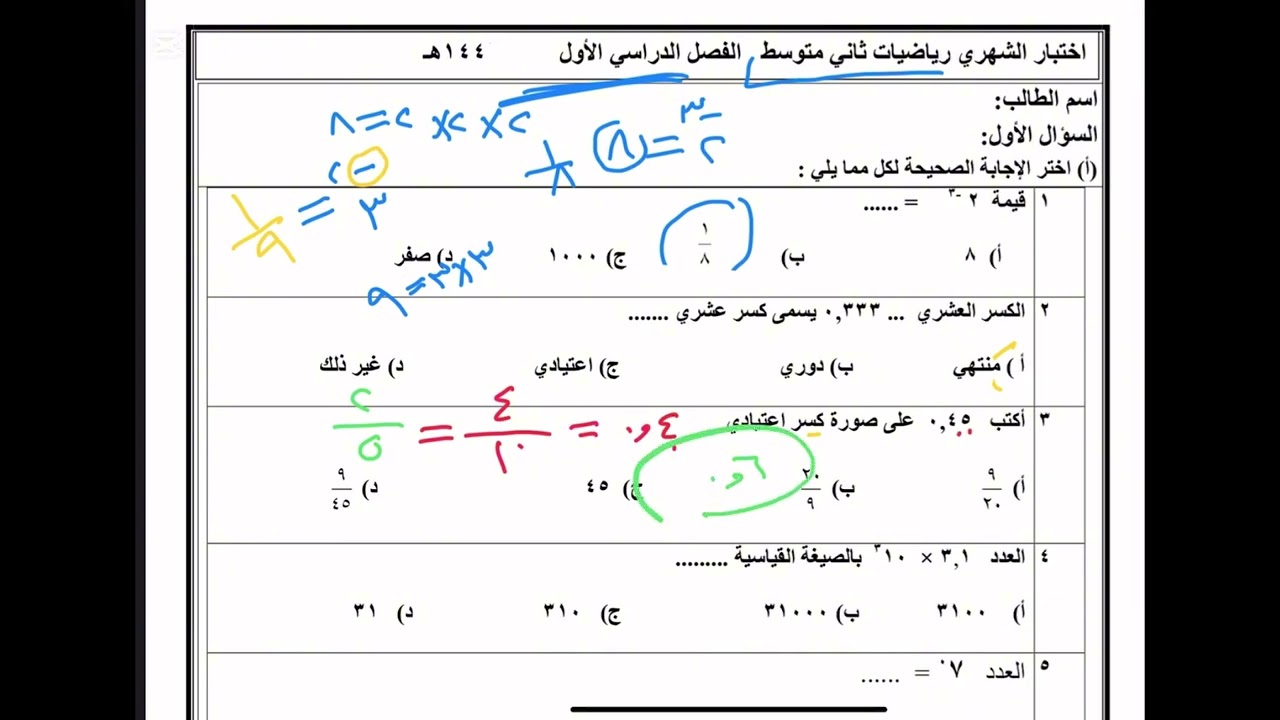 اختبار الشهري رياضيات ثاني متوسط الفصل الدراسي الأول ١٤٤هـ
اسم الطالب:
السؤال الأول:
(أ) اختر الإجابة الصحيحة لكل مما يلي :
٨ = ٢ × ٢ × ٢
١/٨ ٨ = ٢ ٣-
١/٩ = ٣ ٢-
٩ = ٣×٣
١ قيمة ٢ -٣ = ......
أ) ٨ ب) ١/٨ ج) ١٠٠٠ د) صفر
٢ الكسر العشري ... ٠,٣٣٣ يسمى كسر عشري .......
أ ) منتهي ب) دوري ج) اعتيادي د) غير ذلك
٣ أكتب ٠,٤٥ على صورة كسر اعتيادي
٢/٥ = ٤/١٠ = ٠,٤
٠,٦
أ) ٩/٢٠ ب) ٢٠/٩ ج) ٤٥ د) ٩/٤٥
٤ العدد ٣,١ × ١٠ ٣ بالصيغة القياسية .........
أ) ٣١٠٠ ب) ٣١٠٠٠ ج) ٣١٠ د) ٣١
٥ العدد ٧٠ = ......